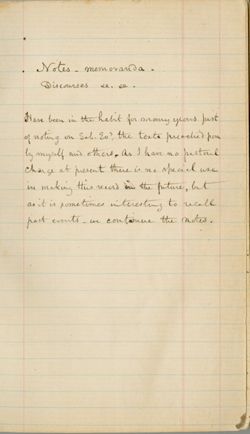 Notes - memoranda.
Discourses &c. &c.
Have been in the habit for many years past
of noting on the texts preached from
by myself and others. As I have no pastoral
charge at present there is no special use
in making this record in the future, but
as it is sometimes interesting to recall
past events - we continue the notes.